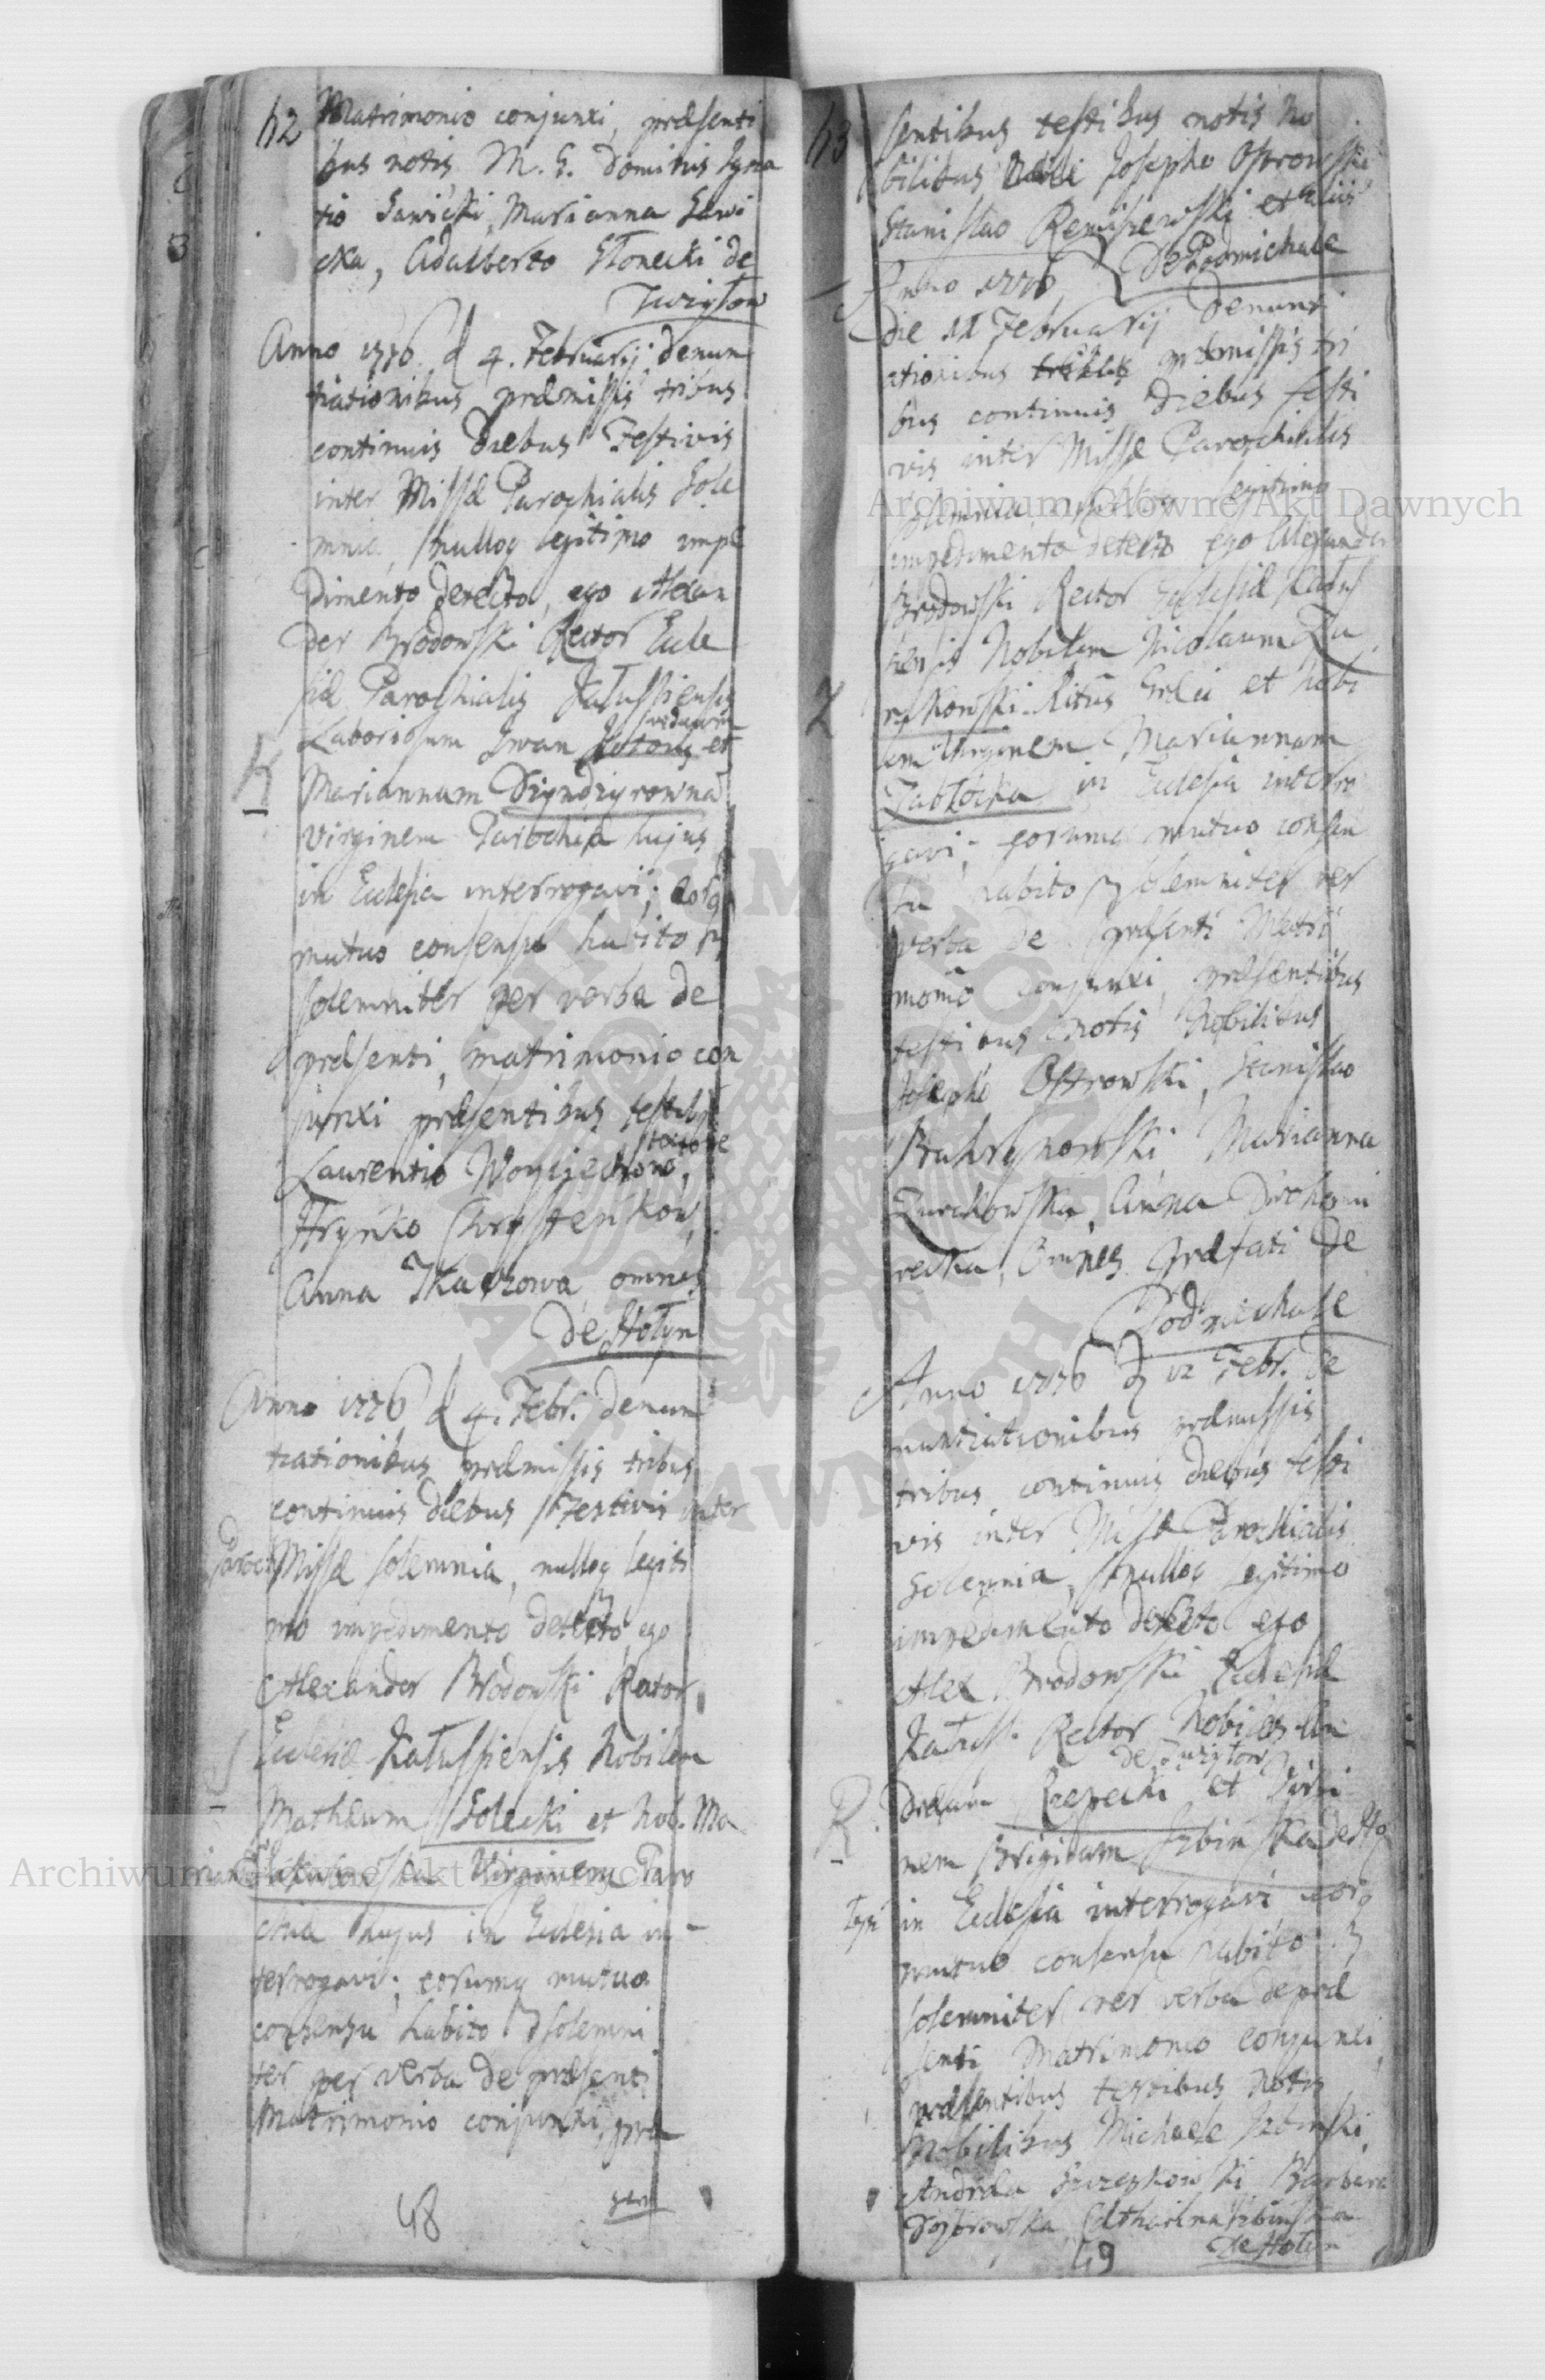 42
Matrimonio conjunxi, præsenti
bus notis M. G. Dominis Igna
tio Sawicki, Marianna Sawi
cka, Adalberto Słonecki de
Zwizton
Anno 1776 d 4. Februarij denun
tiationibus præmissis tribus
continuis diebus Festivis
inter Missæ Parochialis Sole
mnia, nulloq legitimo impe
dimento detecto, ego Alexan
der Brodowski Rector Eccle
siæ Parochialis Kałussiensis
Laboriosum Iwan et
K
Mariannam Dzyndzyrowna
Virginem Parochiæ hujus
in Eclesia interrogavi; eorq
mutuo consensu habito
solemniter per verba de
præsenti, matrimonio con
junxi præsentibus testib9
Laurentio Woyciechow,
Hryńko Chrystenkow,
Anna Tkaczowa omnes
De Hołyn
Anno 1776 d 4. Febr. denun
tiationibus præmissis tribus
continuis diebus Festivis inter
Paroch Missæ solemnia, nulloq legiti
mo impedimento detecto, ego
Alexander Brodowski Rector
Eclesiæ Kałussiensis Nobilem
S
Mathæum Solecki et Nob. Ma
Virginem Paro
chiæ hujus in Eclesia in-
terrogavi; eorumq mutuo
consensu habito solemni
ter per verba de præsenti
Matrimonio conjunxi, præ
sen
48
43
sentibus testibus notis No
bilibus Josepho Ostrowski
Stanislao Remiszewski et aliis
De Podmichale
Anno 1776
die 11 Februarij Denunt
iationibus præmissis tri
bus continuis Diebus festi
vis inter Missæ Parochialis
solemnia, nulloq legitimo
impedimento detecto ego Alexander
Brodowski Rector Eclesiæ Kałus
siensis Nobilem Nicolaum Zu
Z
rakowski Ritus Græci et Nobi
lem Virginem Mariannam
Zabłocka in Eclesia interro
gavi; eorumq mutuo consen
su habito solemniter per
verba de præsenti Matri
monio conjunxi præsentibus
testibus notis Nobilibus
Josepho Ostrowski, Stanislao
Marianna
Zurakowska, Anna
recka, Omnes præfati De
Podmichale
Anno 1776 d 12 Febr. De
nuntiationibus præmissis
tribus continuis diebus festi
vis inter Missæ Parochialis
Solemnia, nulloq legitimo
impedimento detecto ego
Alex Brodowski Eclesiæ
Kałuss. Rector Nobiles An
de Zwizton
R
dream Rzepecki et Virgi
nem Brigidam Izbinska de Ho
łyń in Eclesia interrogavi eorq
mutuo consensu habito
solemniter per verba de præ
senti Matrimonio conjunxi,
præsentibus testibus notis
Nobilibus Michaele Izbinski,
Andrea Szczepkowski Barbara
Catharina Izbinska
De Hołyn
49
Archiwum Główne Akt Dawnych
Archiwum Główne Akt Dawnych